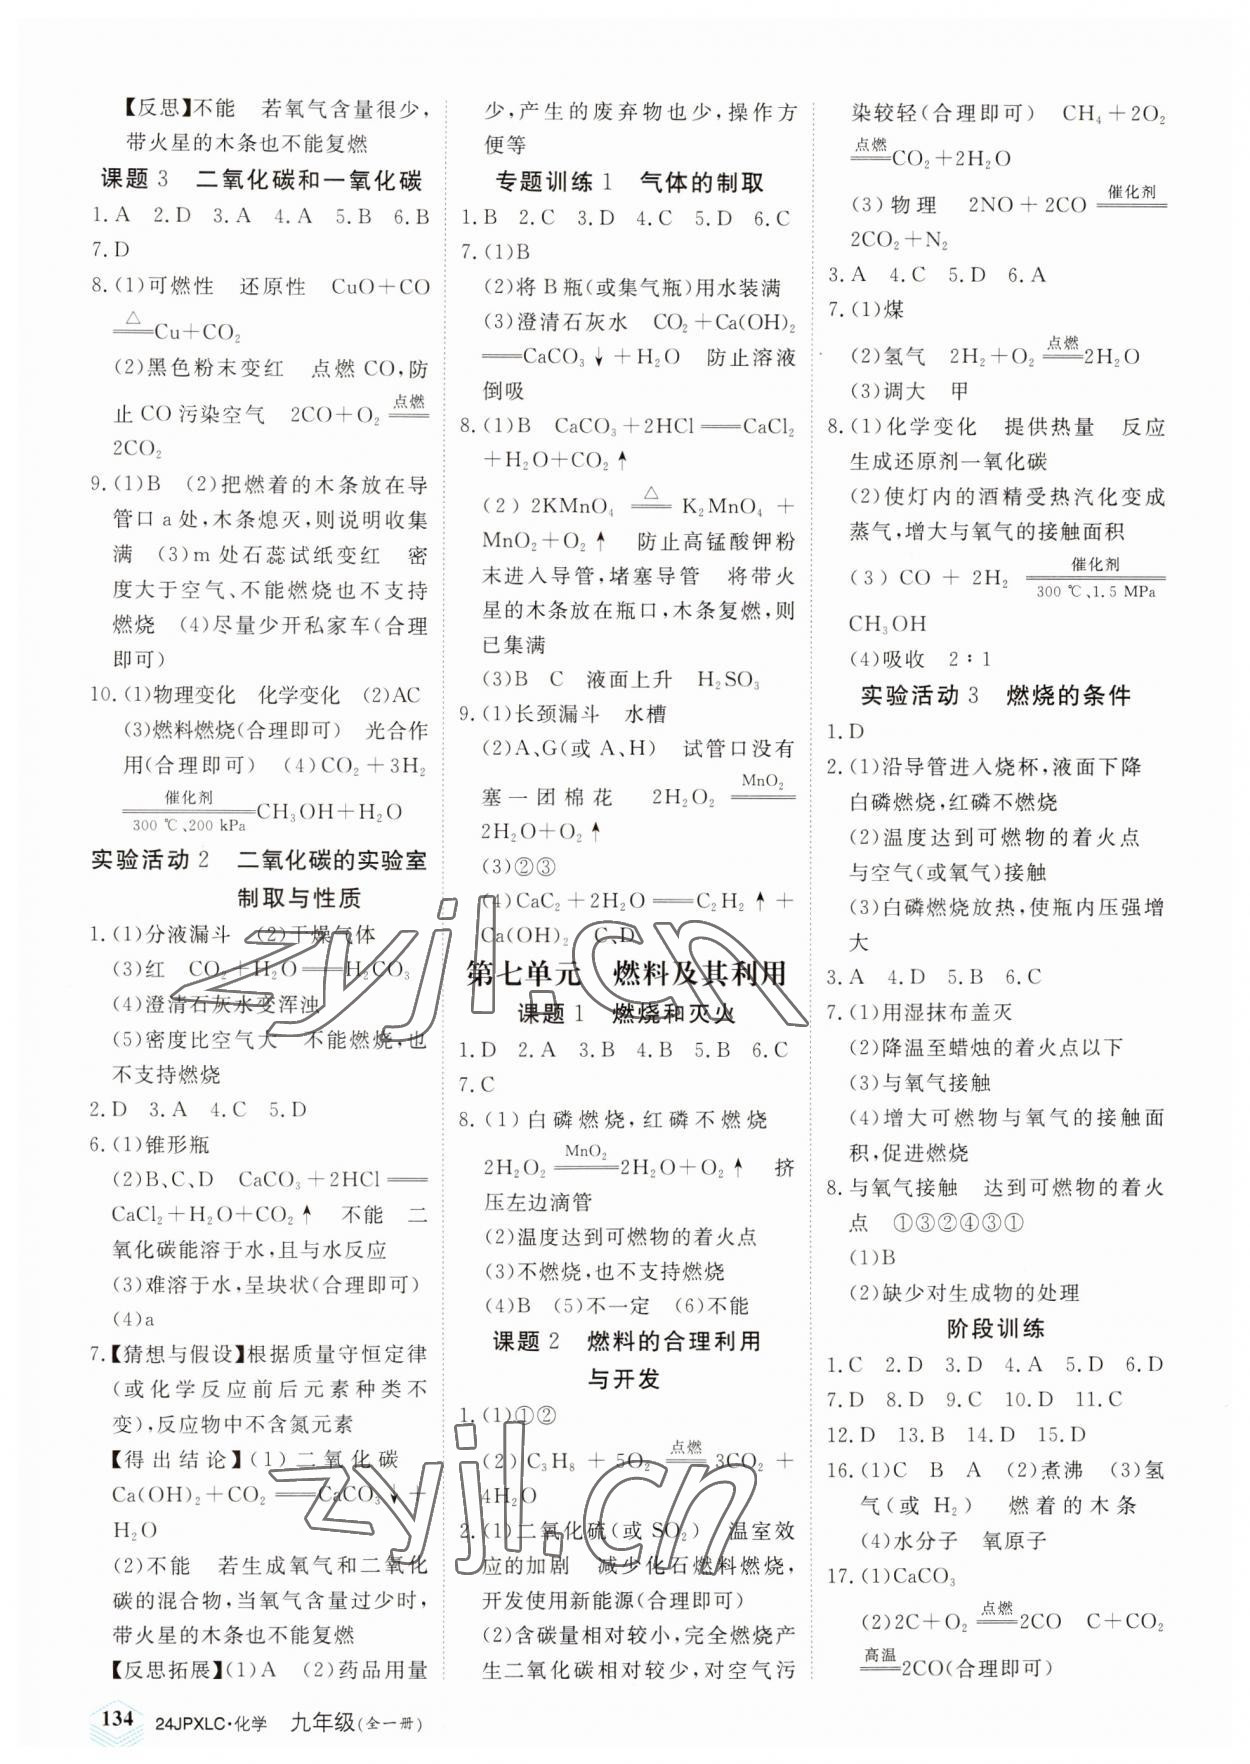 【反思】不能　若氧气含量很少,
带火星的木条也不能复燃
课题 3　二氧化碳和一氧化碳
1. A　2. D　3. A　4. A　5. B　6. B
7. D
8. (1)可燃性　还原性　CuO＋CO
△
══Cu＋CO₂
(2)黑色粉末变红　点燃 CO,防
止 CO 污染空气　2CO＋O₂ 点燃══
2CO₂
9. (1)B　(2)把燃着的木条放在导
管口 a 处,木条熄灭,则说明收集
满　(3)m 处石蕊试纸变红　密
度大于空气、不能燃烧也不支持
燃烧　(4)尽量少开私家车(合理
即可)
10. (1)物理变化　化学变化　(2)AC
(3)燃料燃烧(合理即可)　光合作
用(合理即可)　(4)CO₂＋3H₂
催化剂
══CH₃OH＋H₂O
300 ℃、200 kPa
实验活动 2　二氧化碳的实验室
制取与性质
1. (1)分液漏斗　(2)干燥气体
(3)红　CO₂＋H₂O══H₂CO₃
(4)澄清石灰水变浑浊
(5)密度比空气大　不能燃烧,也
不支持燃烧
2. D　3. A　4. C　5. D
6. (1)锥形瓶
(2)B、C、D　CaCO₃＋2HCl══
CaCl₂＋H₂O＋CO₂↑　不能　二
氧化碳能溶于水,且与水反应
(3)难溶于水,呈块状(合理即可)
(4)a
7.【猜想与假设】根据质量守恒定律
(或化学反应前后元素种类不
变),反应物中不含氮元素
【得出结论】(1)二氧化碳
Ca(OH)₂＋CO₂══CaCO₃↓＋
H₂O
(2)不能　若生成氧气和二氧化
碳的混合物,当氧气含量过少时,
带火星的木条也不能复燃
【反思拓展】(1)A　(2)药品用量
少,产生的废弃物也少,操作方
便等
专题训练 1　气体的制取
1. B　2. C　3. D　4. C　5. D　6. C
7. (1)B
(2)将 B 瓶(或集气瓶)用水装满
(3)澄清石灰水　CO₂＋Ca(OH)₂
══CaCO₃↓＋H₂O　防止溶液
倒吸
8. (1)B　CaCO₃＋2HCl══CaCl₂
＋H₂O＋CO₂↑
(2) 2KMnO₄ △══ K₂MnO₄ ＋
MnO₂＋O₂↑　防止高锰酸钾粉
末进入导管,堵塞导管　将带火
星的木条放在瓶口,木条复燃,则
已集满
(3)B　C　液面上升　H₂SO₃
9. (1)长颈漏斗　水槽
(2)A、G(或 A、H)　试管口没有
塞一团棉花　2H₂O₂ MnO₂══
2H₂O＋O₂↑
(3)②③
(4)CaC₂＋2H₂O══C₂H₂↑＋
Ca(OH)₂　C、D
第七单元　燃料及其利用
课题 1　燃烧和灭火
1. D　2. A　3. B　4. B　5. B　6. C
7. C
8. (1)白磷燃烧,红磷不燃烧
2H₂O₂ MnO₂══2H₂O＋O₂↑　挤
压左边滴管
(2)温度达到可燃物的着火点
(3)不燃烧,也不支持燃烧
(4)B　(5)不一定　(6)不能
课题 2　燃料的合理利用
与开发
1. (1)①②
(2) C₃H₈ ＋ 5O₂ 点燃══ 3CO₂ ＋
4H₂O
2. (1)二氧化硫(或 SO₂)　温室效
应的加剧　减少化石燃料燃烧,
开发使用新能源(合理即可)
(2)含碳量相对较小,完全燃烧产
生二氧化碳相对较少,对空气污
染较轻(合理即可)　CH₄＋2O₂
点燃
══CO₂＋2H₂O
(3)物理　2NO＋2CO 催化剂══
2CO₂＋N₂
3. A　4. C　5. D　6. A
7. (1)煤
(2)氢气　2H₂＋O₂ 点燃══2H₂O
(3)调大　甲
8. (1)化学变化　提供热量　反应
生成还原剂一氧化碳
(2)使灯内的酒精受热汽化变成
蒸气,增大与氧气的接触面积
(3) CO ＋ 2H₂ 催化剂══300 ℃、1.5 MPa
CH₃OH
(4)吸收　2∶1
实验活动 3　燃烧的条件
1. D
2. (1)沿导管进入烧杯,液面下降
白磷燃烧,红磷不燃烧
(2)温度达到可燃物的着火点
与空气(或氧气)接触
(3)白磷燃烧放热,使瓶内压强增
大
3. A　4. D　5. B　6. C
7. (1)用湿抹布盖灭
(2)降温至蜡烛的着火点以下
(3)与氧气接触
(4)增大可燃物与氧气的接触面
积,促进燃烧
8. 与氧气接触　达到可燃物的着火
点　①③②④③①
(1)B
(2)缺少对生成物的处理
阶段训练
1. C　2. D　3. D　4. A　5. D　6. D
7. D　8. D　9. C　10. D　11. C
12. D　13. B　14. D　15. D
16. (1)C　B　A　(2)煮沸　(3)氢
气(或 H₂)　燃着的木条
(4)水分子　氧原子
17. (1)CaCO₃
(2)2C＋O₂ 点燃══2CO　C＋CO₂
高温
══2CO(合理即可)
134　24JPXLC·化学　九年级(全一册)
zyjl.cn
zyjl.cn